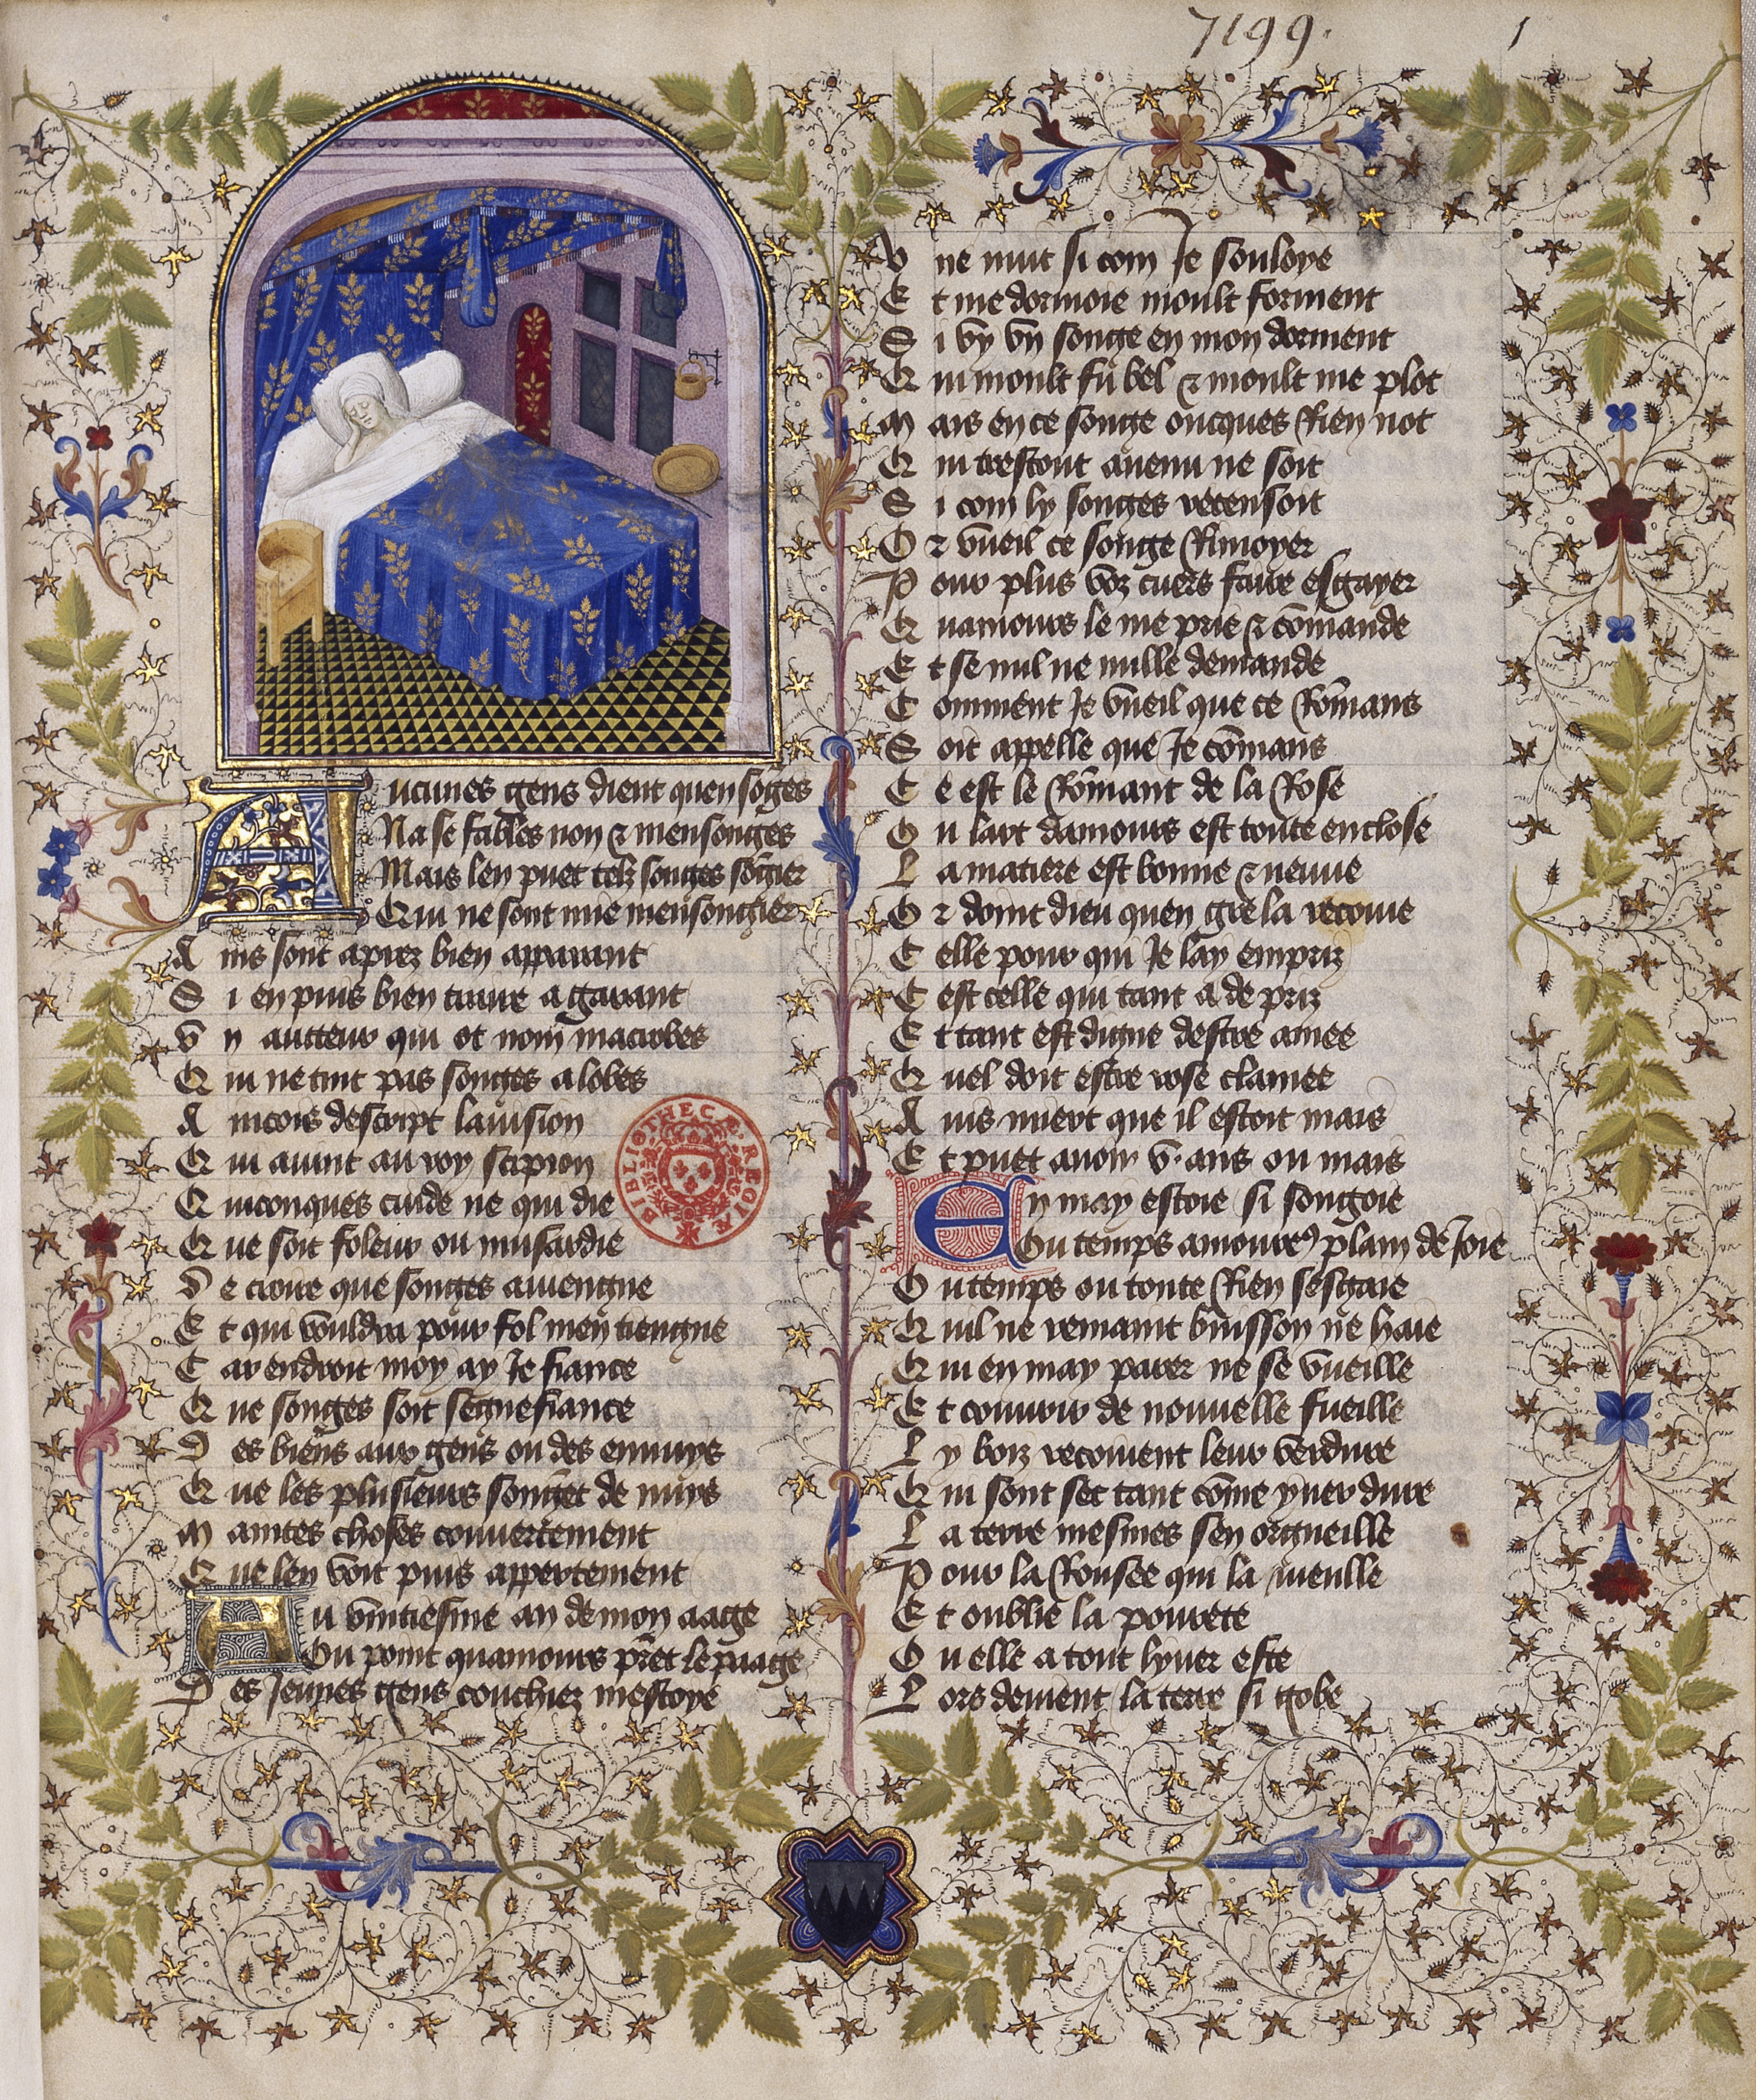 7199.
1
Aucunes gens dient quen sõges
Na se fables non & mensonges
Mais len puet telz songes sõgier
Qui ne sont mie mensongier
Ains sont aprez bien apparant
Si en puis bien traire a garant
Vn aucteur qui ot nom macrobes
Qui ne tint pas songes a lobes
Aincois descript lauision
Qui auint au roy scipion
Quiconques cuide ne qui die
Que soit foleur ou musardie
De croire que songes auiengne
Et qui vouldra pour fol men tiengne
Car endroit moy ay Je fiance
Que songes soit segnefiance
Des biens aux gens ou des ennuys
Que les plusieurs songet de nuys
Maintes choses couuertement
Que len voit puis appertement
Au vintiesme an de mon aage
Ou point quamours prẽt le paage
Des Jeunes gens couchier mestoye
Vne nuit si com Je souloye
Et me dormoie moult forment
Si vy vn songe en mon dorment
Qui moult fu bel & moult me plot
Mais en ce songe oncques Rien not
Qui trestout auenu ne soit
Si com ly songes recensoit
Or vueil ce songe Rimoyer
Pour plus voz cuers faire esgayer
Quamours le me prie & cõmande
Et se nul ne nulle demande
Comment Je vueil que ce Rõmans
Soit appelle que Je cõmans
Ce est le Rõmant de la Rose
Ou lart damours est toute enclose
La matiere est bonne & neuue
Or doint dieu quen gre la recoiue
Celle pour qui Je lay empriz
Cest celle qui tant a de priz
Et tant est digne destre amee
Quel doit estre rose clamee
Auis miert que il estoit mais
Et puet auoir v. ans ou mais
En may estoie si songoie
Ou temps amoureux plain de Joie
Ou temps ou toute Rien sesgaie
Quil ne remaint buisson ne haie
Qui en may parer ne se vueille
Et couurir de nouuelle fueille
Ly boiz recoiuent leur verdure
Qui sont sec tant cõme yuer dure
La terre mesmes sen orgueille
Pour la Rousee qui la mueille
Et oublie la pourete
Ou elle a tout lyuer este
Lors deuient la terre si gobe
BIBLIOTHECÆ REGIÆ